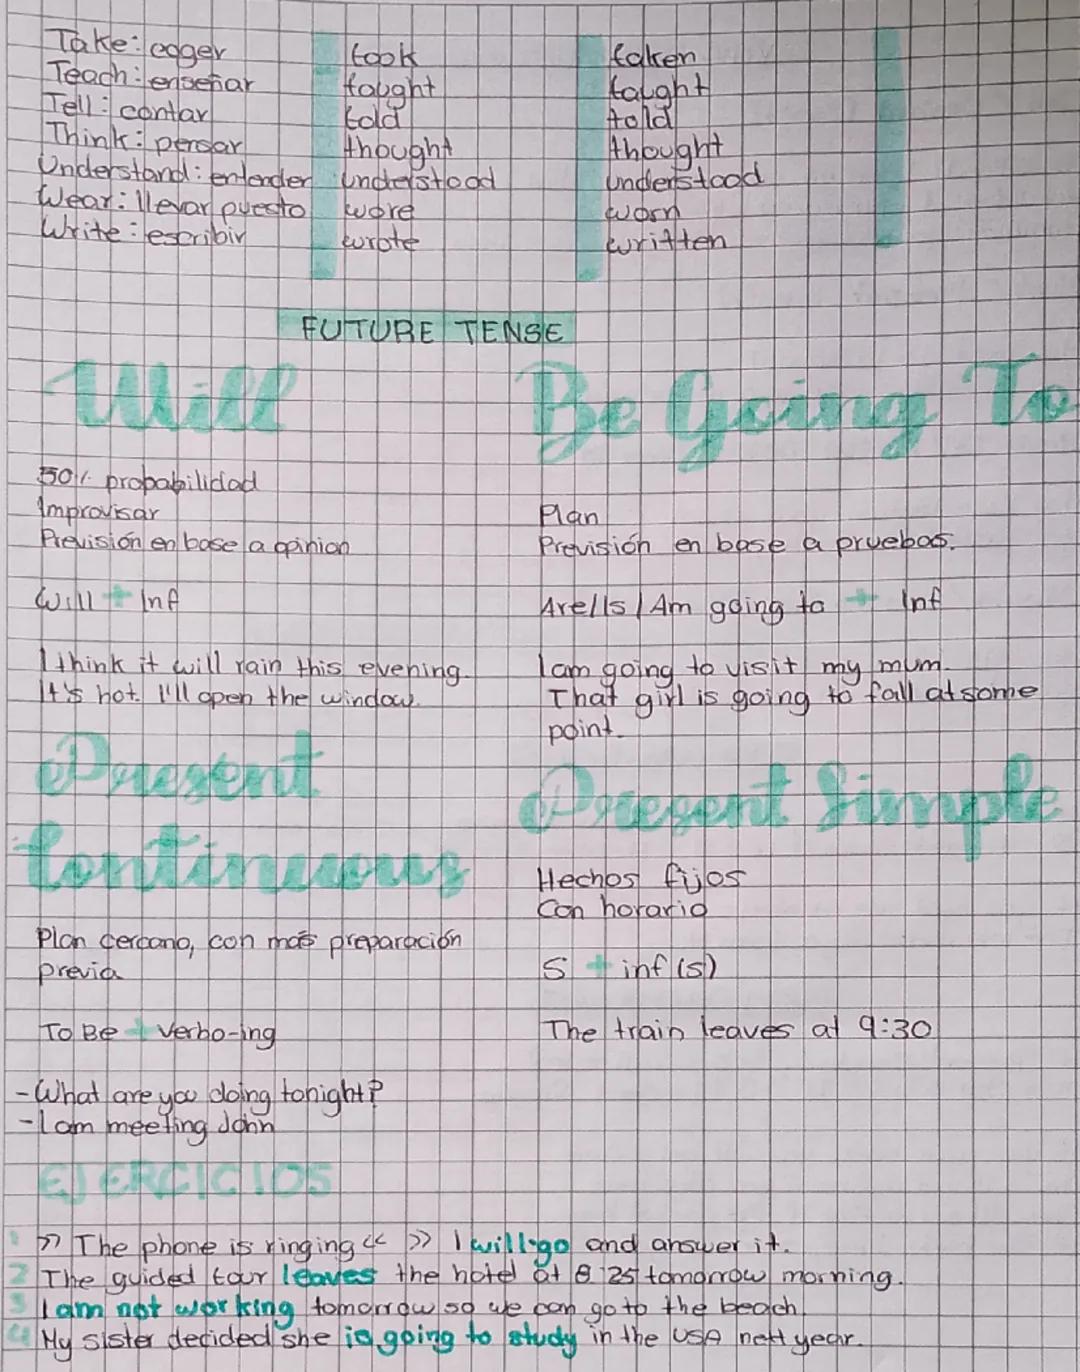 Take: coger took taken
Teach: enseñar taught taught
Tell: contar told told
Think: pensar thought thought
Understand: entender understood understood
Wear: llevar puesto wore worn
Write: escribir wrote written
FUTURE TENSE
Will
50% probabilidad
Improvisar
Previsión en base a opinion
Will + Inf
I think it will rain this evening.
It's hot. I'll open the window.
Be Going To
Plan
Previsión en base a pruebas.
Are/Is/Am going to + Inf
I am going to visit my mum.
That girl is going to fall at some
point.
Present
Continuous
Plan cercano, con más preparación
previa
To Be + verbo-ing
-What are you doing tonight?
-I am meeting John
Present Simple
Hechos fijos
Con horario
S + inf (s)
The train leaves at 9:30
EJERCICIOS
1 >> The phone is ringing << >> I will go and answer it.
2 The guided tour leaves the hotel at 8:25 tomorrow morning.
3 I am not working tomorrow so we can go to the beach.
4 My sister decided she is going to study in the USA next year.